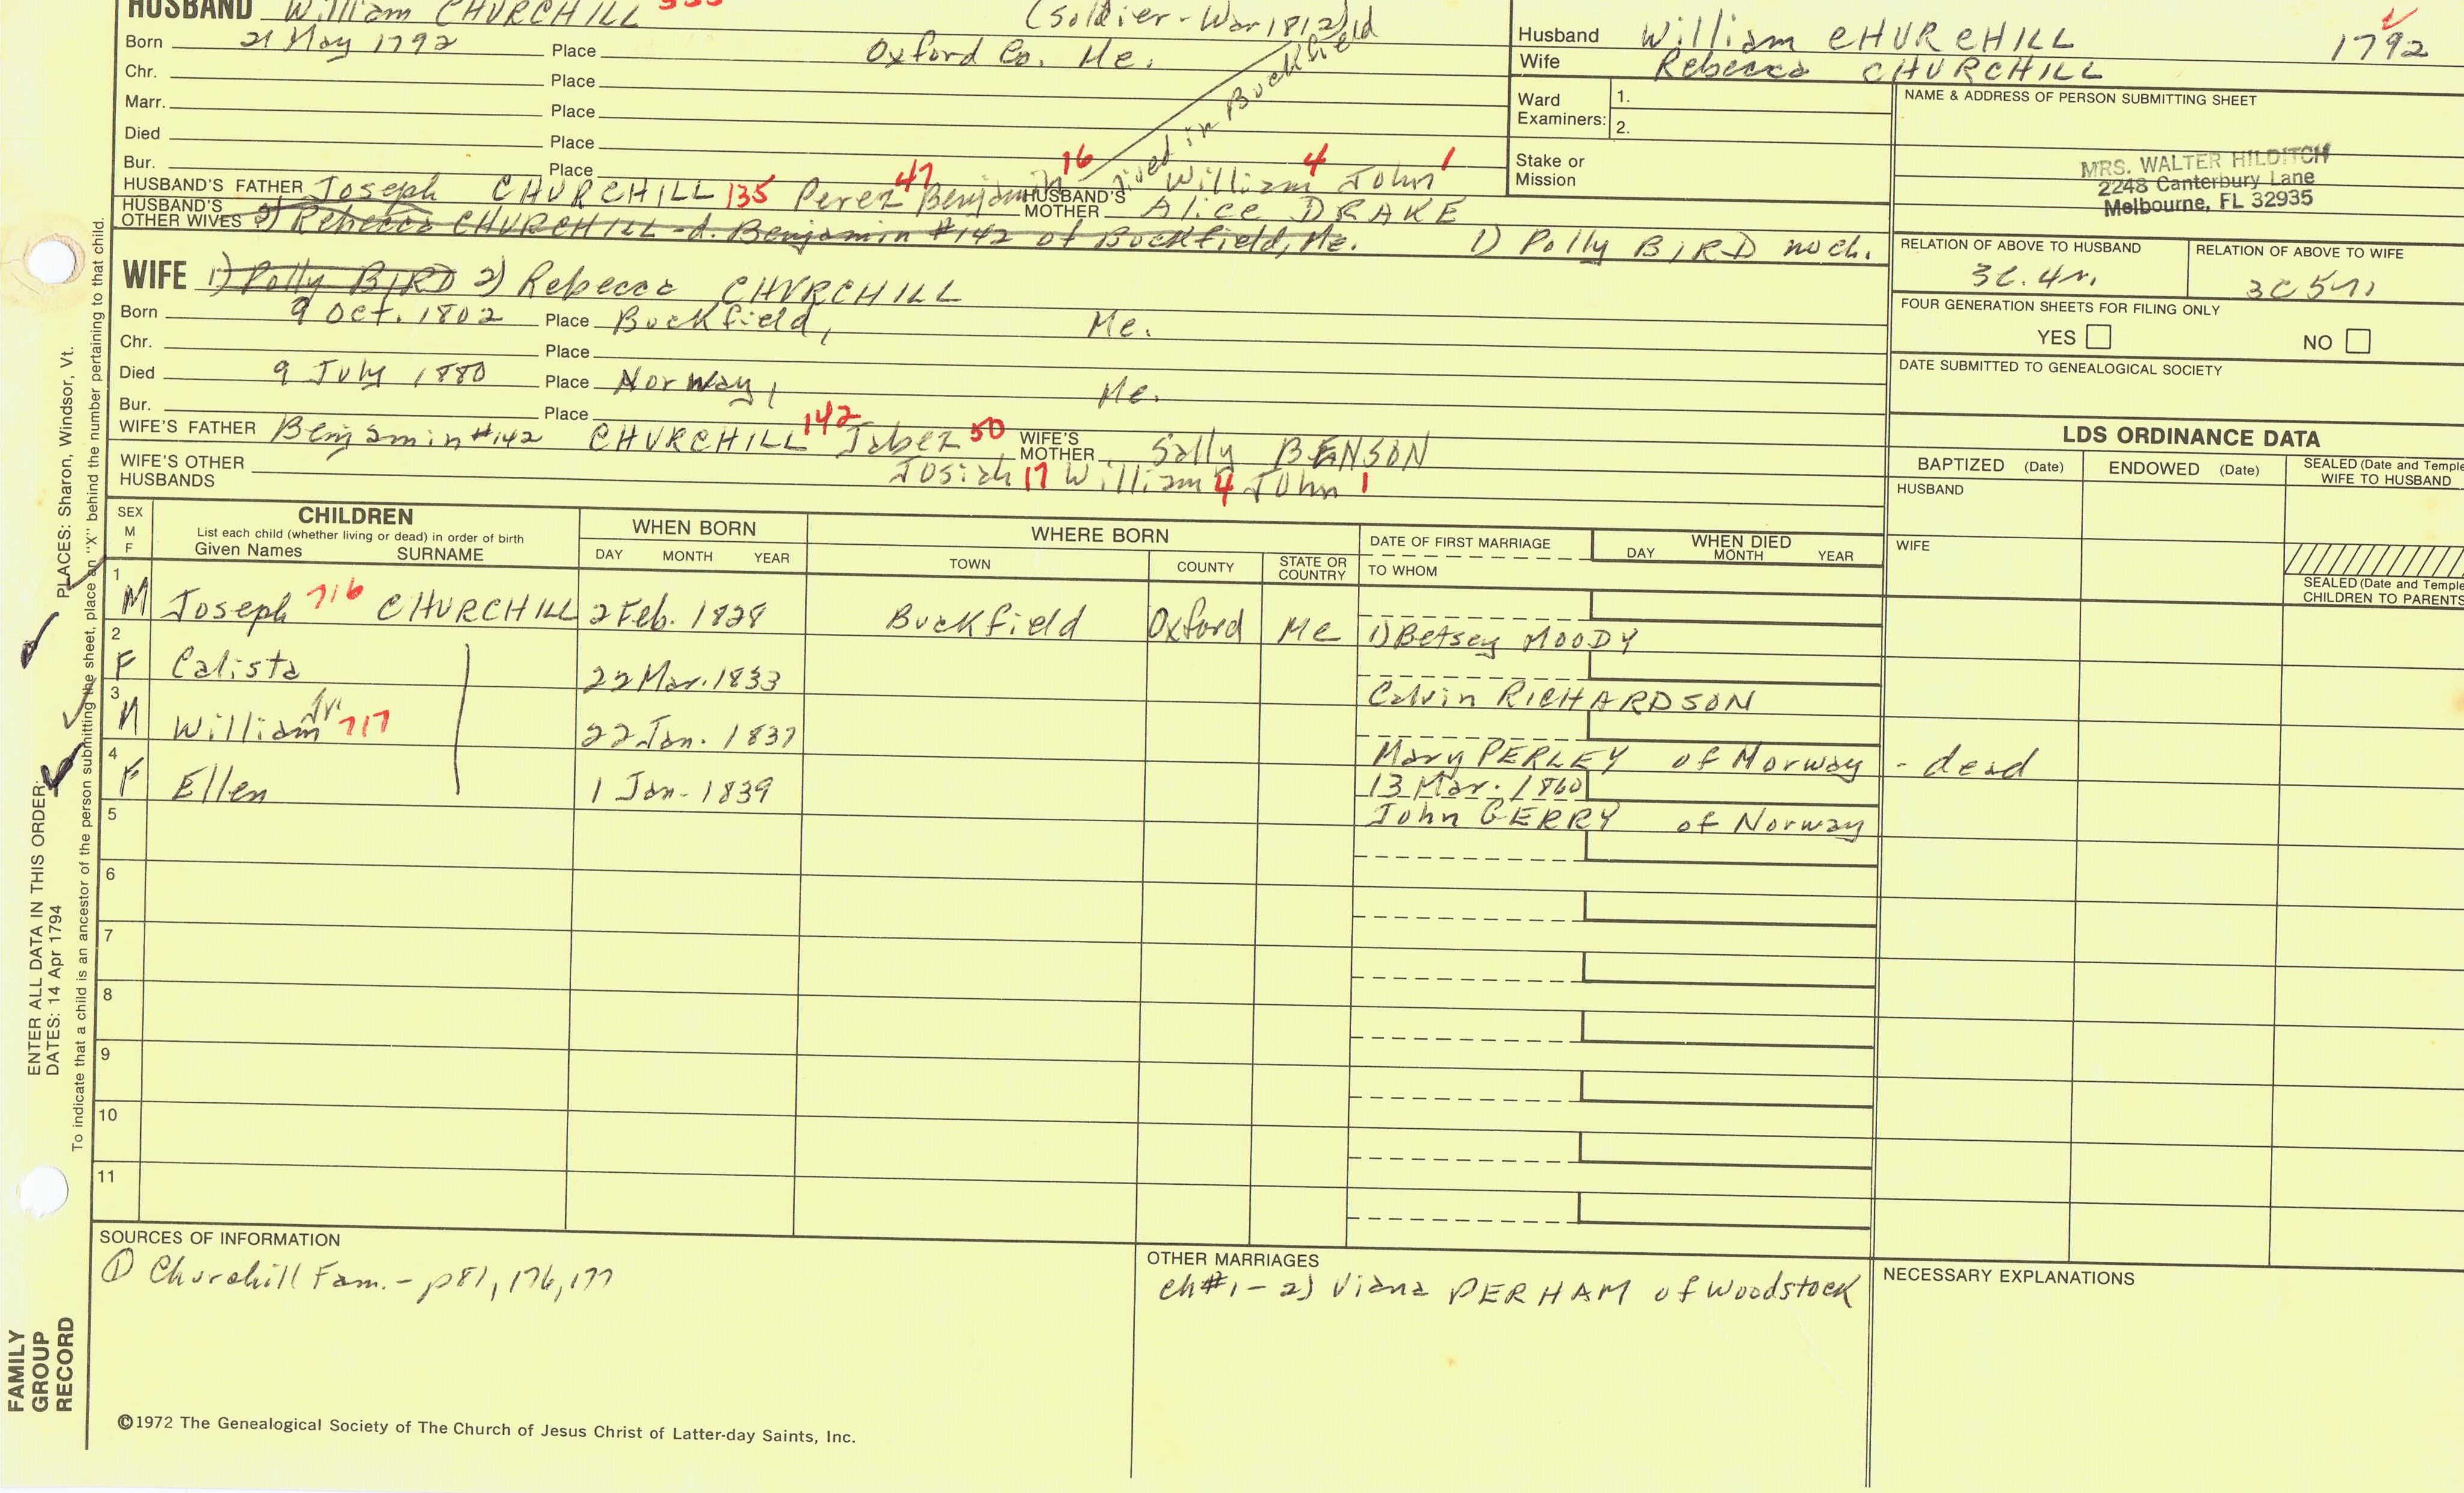 HUSBAND William CHURCHILL
(Soldier - War 1812)
Born 21 May 1792 Place Oxford Co. Me.
lived in Buckfield
Chr. Place
Marr. Place
Died Place
Bur. Place
HUSBAND'S FATHER Joseph CHURCHILL 135 Perez 47 Benjamin 16 William 4 John 1
HUSBAND'S MOTHER Alice DRAKE
HUSBAND'S OTHER WIVES 2) Rebecca CHURCHILL - d. Benjamin #142 of Buckfield, Me. 1) Polly BIRD no ch.
WIFE 1) Polly BIRD 2) Rebecca CHURCHILL
Born 9 Oct. 1802 Place Buckfield, Me.
Chr. Place
Died 9 July 1880 Place Norway, Me.
Bur. Place
WIFE'S FATHER Benjamin #142 CHURCHILL 142 Jabez 50
WIFE'S MOTHER Sally BENSON
Josiah 17 William 4 John 1
WIFE'S OTHER HUSBANDS
Husband William CHURCHILL 1792
Wife Rebecca CHURCHILL
Ward Examiners: 1.
2.
Stake or Mission
NAME & ADDRESS OF PERSON SUBMITTING SHEET
MRS. WALTER HILDITCH
2248 Canterbury Lane
Melbourne, FL 32935
RELATION OF ABOVE TO HUSBAND RELATION OF ABOVE TO WIFE
3C.4r. 3C5r
FOUR GENERATION SHEETS FOR FILING ONLY
YES NO
DATE SUBMITTED TO GENEALOGICAL SOCIETY
LDS ORDINANCE DATA
BAPTIZED (Date) ENDOWED (Date) SEALED (Date and Temple
WIFE TO HUSBAND
HUSBAND
WIFE
SEALED (Date and Temple
CHILDREN TO PARENTS
SEX M F
CHILDREN
List each child (whether living or dead) in order of birth
Given Names SURNAME
WHEN BORN
DAY MONTH YEAR
WHERE BORN
TOWN COUNTY STATE OR COUNTRY
DATE OF FIRST MARRIAGE
TO WHOM
WHEN DIED
DAY MONTH YEAR
1 M Joseph 716 CHURCHILL 2 Feb. 1828 Buckfield Oxford Me 1) Betsey MOODY
2 F Calista 22 Mar. 1833 Calvin RICHARDSON
3 M William Jr. 717 22 Jan. 1837 Mary PERLEY of Norway - dead
4 F Ellen 1 Jan. 1839 13 Mar. 1860
John GERRY of Norway
5
6
7
8
9
10
11
SOURCES OF INFORMATION
① Churchill Fam. - p81, 176, 177
OTHER MARRIAGES
ch#1 - 2) Viana PERHAM of Woodstock
NECESSARY EXPLANATIONS
©1972 The Genealogical Society of The Church of Jesus Christ of Latter-day Saints, Inc.
FAMILY
GROUP
RECORD
ENTER ALL DATA IN THIS ORDER:
DATES: 14 Apr 1794
PLACES: Sharon, Windsor, Vt.
To indicate that a child is an ancestor of the person submitting the sheet, place an "X" behind the number pertaining to that child.